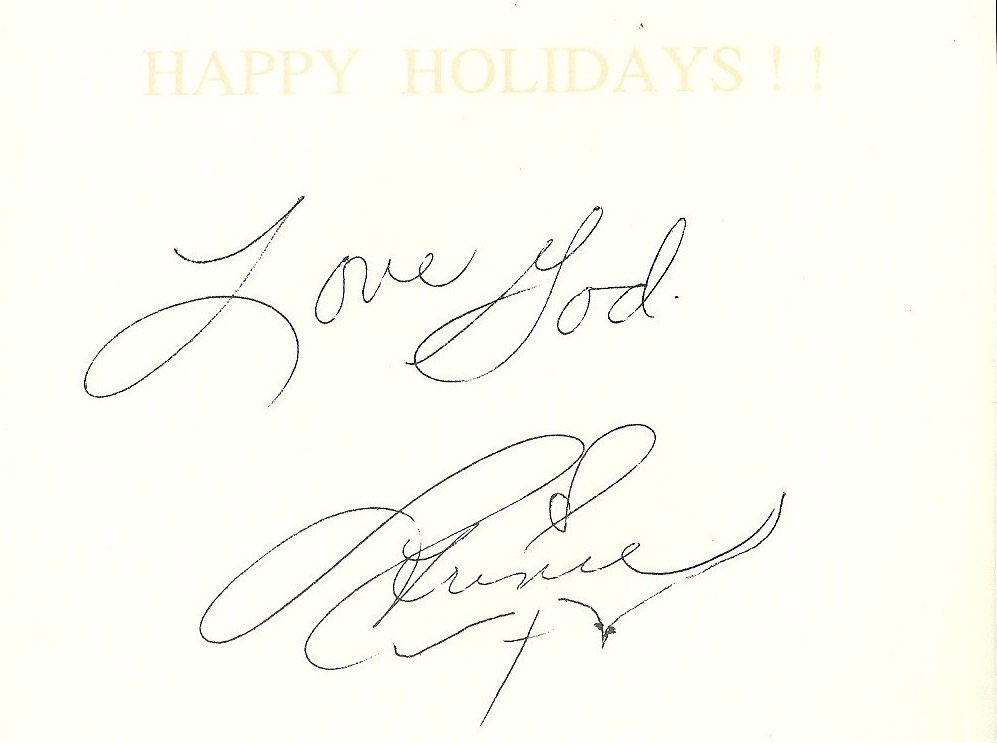 HAPPY HOLIDAYS!!
Love God.
Prince